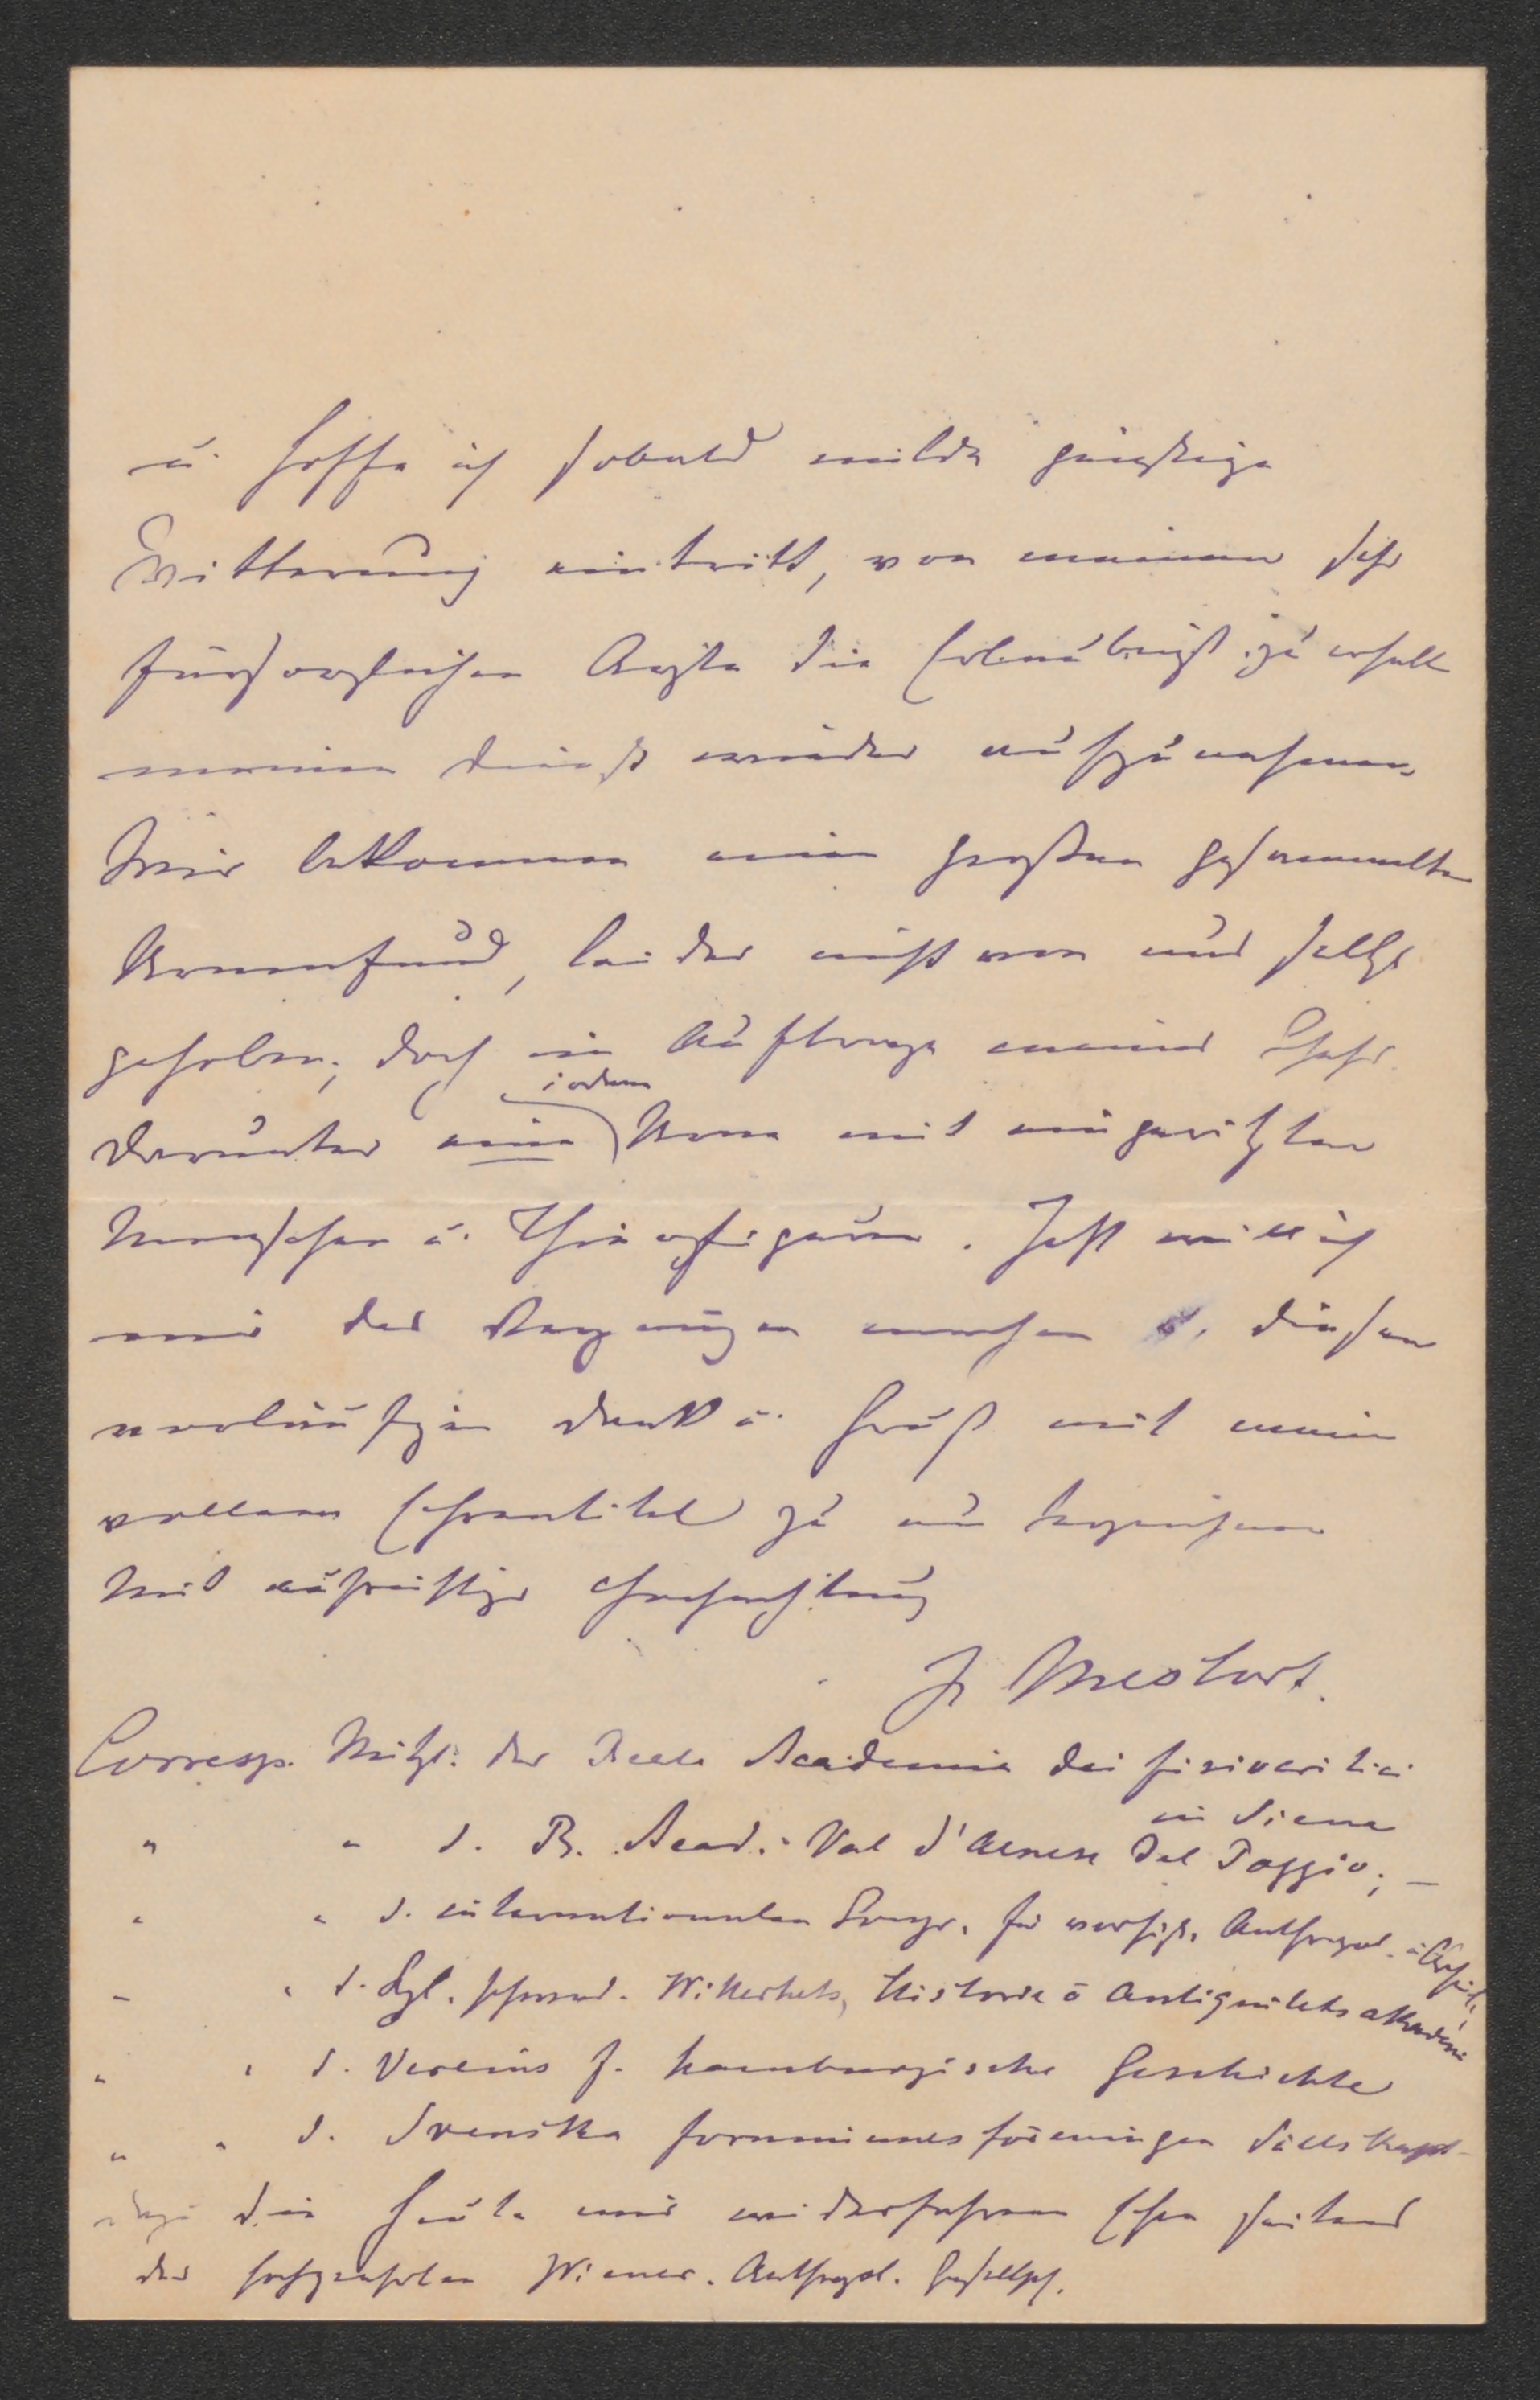 u. hoffe ich sobald milde günstige
Witterung eintritt, von meinem sehr
fürsorglichen Arzte die Erlaubniß zu erhalt
meinen Dienst wieder aufzunehmen.
Wir bekommen einen großen gesammelten
Urnenfund, leider nicht von uns selbst
gehoben; doch im Auftrage meines Chefs.
darunter eine Urne mit eingeritzten
Menschen u. Thierfiguren. Jetzt will ich
mir das Vergnügen machen diesen
vorläufigen Dank u. Gruß mit meinem
vollem Ehrentitel zu unterzeichnen
Mit aufrichtiger Hochachtung
J Mestorf.
Corresp. Mitgl. der Reale Academia dei fisiocritici
in Siena
" " d. R. Acad. Val d'Arnese del Poggio; –
" " d. internationalen Congr. für vorhist. Anthropol. u. Archäol.
" " d. Kgl. schwed. Witterhets, Historie o Antiquitets akademi
" " d. Vereins f. hamburgische Geschichte
" " d. Svenska fornminnesföreningen Sällskapet
die heute mir widerfahrene Ehre seitens
der hochgeehrten Wiener. Anthropol. Gesellsch.